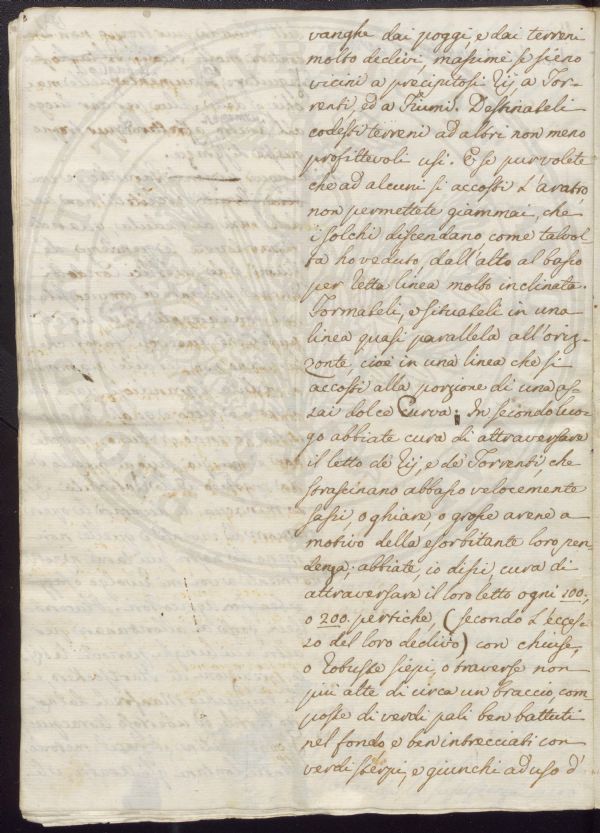 vanghe dai poggi e dai terreni
molto declivi, massime se sieno
vicini a precipitosi Rij, a Tor-
renti, ed a Fiumi. Destinateli
codesti terreni ad altri non meno
profittevoli usi. E se pur volete
che ad alcuni si accosti l'aratro,
non permettete giammai, che
i solchi discendano, come talvol-
ta ho veduto, dall'alto al basso
per retta linea molto inclinata.
Formateli, e situateli in una
linea quasi parallela all'oriz-
zonte, cioè in una linea che si
accosti alla porzione di una as-
sai dolce Curva: In secondo luo-
go abbiate cura di attraversare
il letto de' Rij, e de' Torrenti, che
strascinano abbasso velocemente
sassi, o ghiare, o grosse arene a
motivo della esorbitante loro pen-
denza; abbiate, io dissi, cura di
attraversare il loro letto ogni 100.,
o 200. pertiche, (secondo l'ecces-
so del loro declivo) con chiuse,
o robuste siepi, o traverse non
più alte di circa un braccio, com
poste di verdi pali ben battuti
nel fondo e ben intrecciati con
verdi sterpi, e giunchi ad uso d'